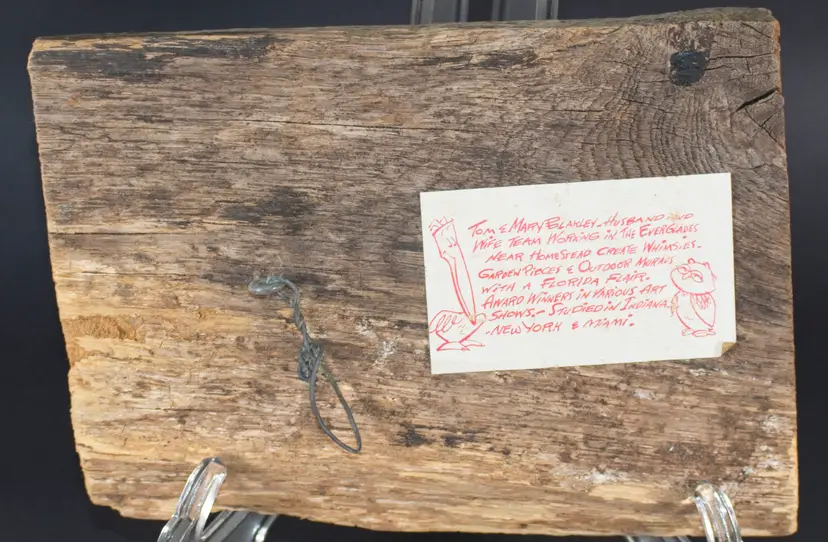 Tom & Mary Blakley - Husband and
Wife Team Working in the Everglades
near Homestead Create Whimsies -
Garden Pieces & Outdoor Murals
with a Florida Flair.
Award Winners in Various Art
Shows. - Studied in Indiana.
New York & Miami.